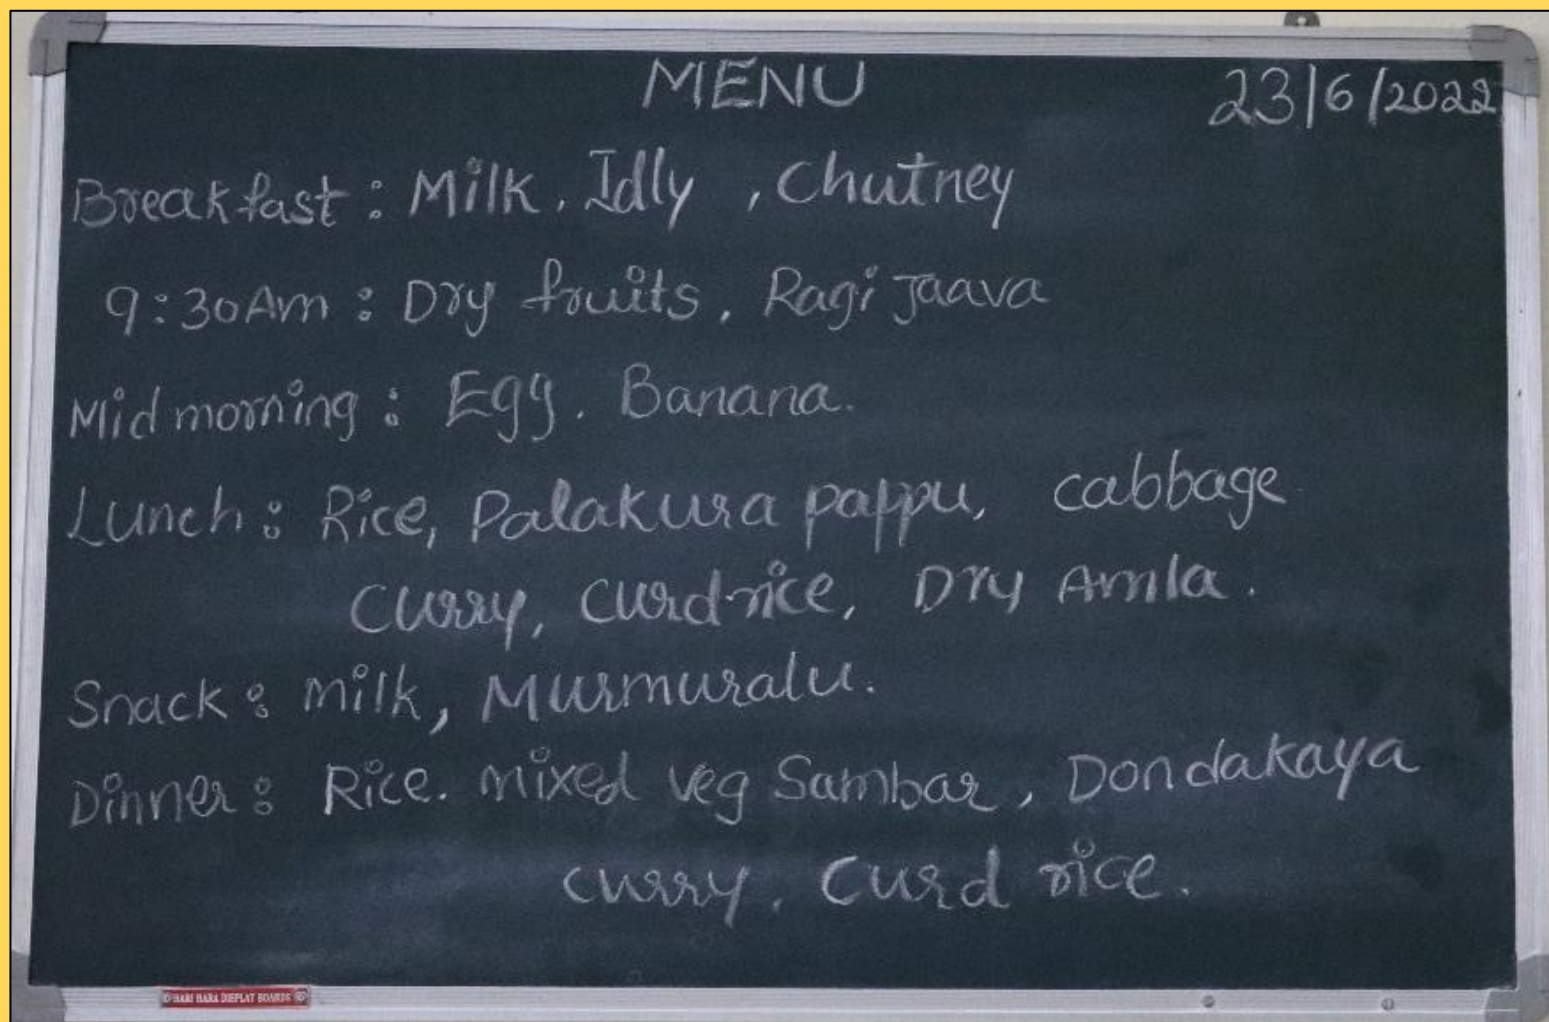 MENU 23/6/2022
Breakfast : Milk, Idly , Chutney
9:30Am : Dry fruits, Ragi Jaava
Mid morning : Egg. Banana.
Lunch : Rice, Palakura pappu, cabbage
Curry, Curd rice, Dry Amla.
Snack : Milk, Murmuralu.
Dinner : Rice. mixed veg Sambar, Dondakaya
curry. Curd rice.
HARI HARA DISPLAY BOARDS